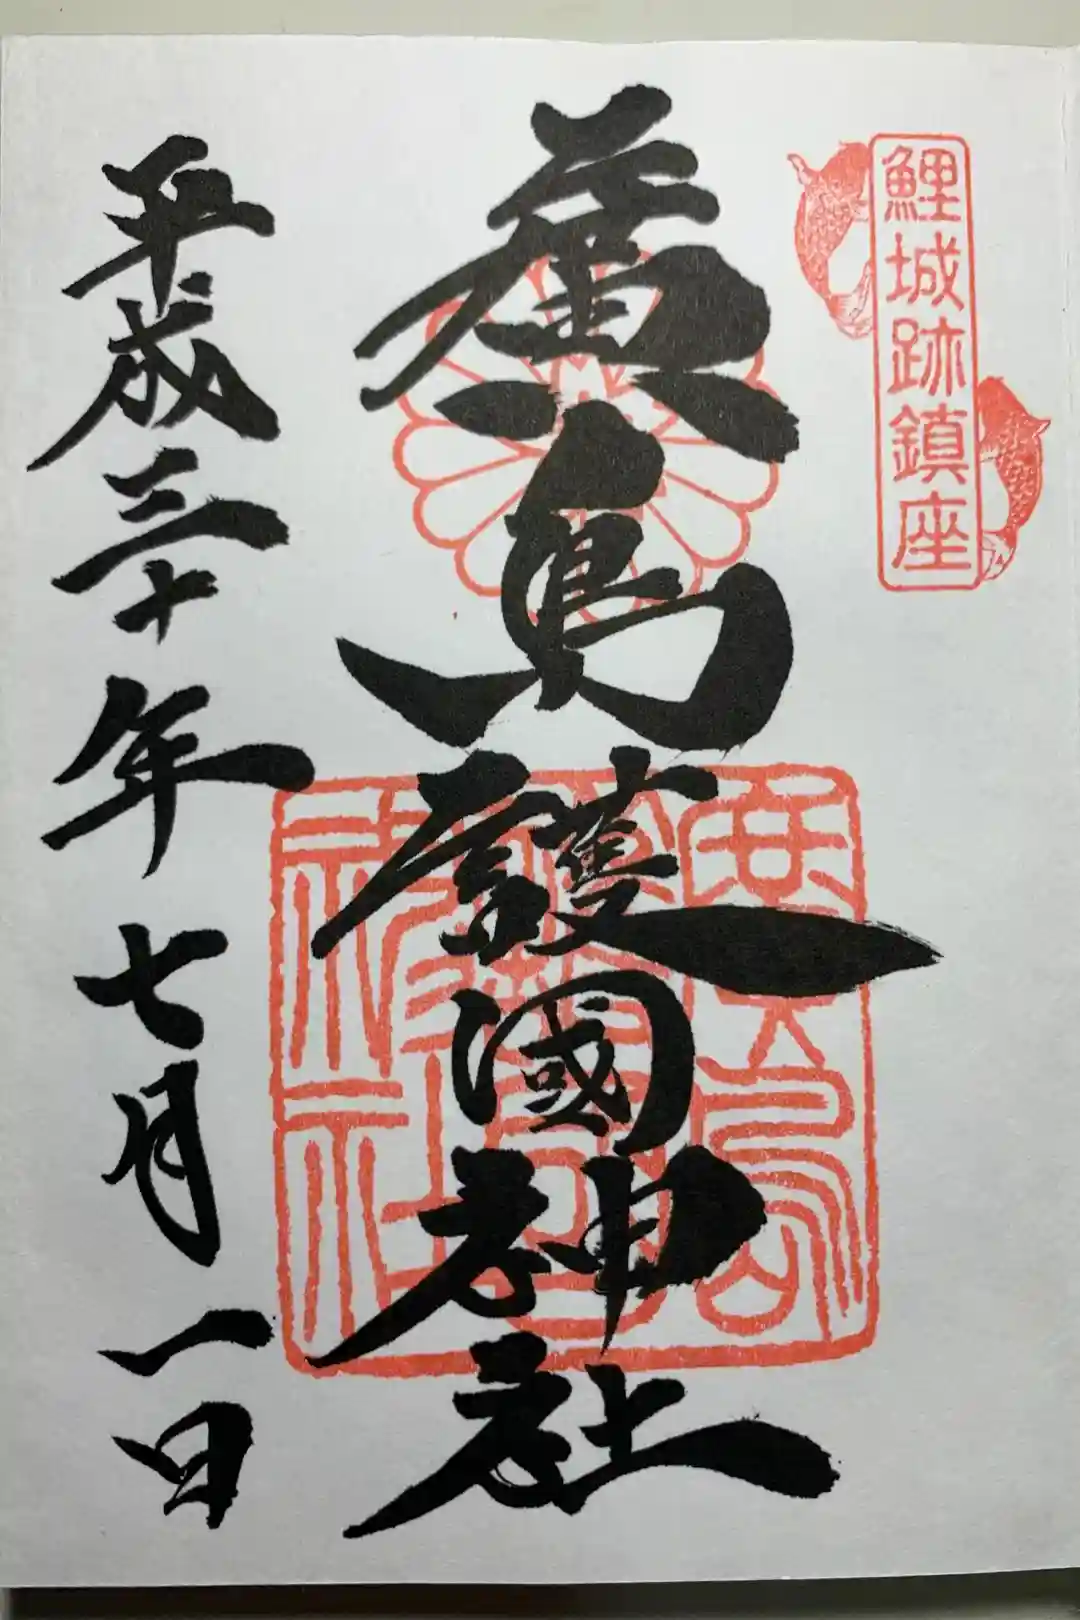 鯉城跡鎮座
廣島護國神社
平成三十年七月一日